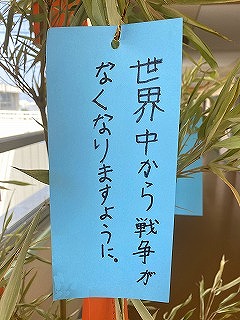 世界中から戦争が
なくなりますように。